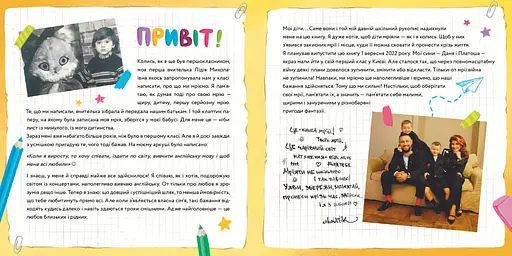 ПРИВІТ!
Колись, як і ти, я теж був першокласником,
моя перша вчителька Лідія Микола-
ївна якось запропонувала нам у класі
написати, про що ми мріємо. Я пам'я-
таю, як думав тоді про свою мрію:
щиру, дитячу, першу серйозну мрію.
Те, що ми написали, вчителька зібрала й передала нашим батькам. І той клаптик па-
перу, на якому була записана моя мрія, зберігся у моєї бабусі. Для мене це — ніби
лист із минулого, із мого дитинства.
Зараз мені вже набагато більше років, ніж було в першому класі. Але я й досі завжди
з усмішкою пригадую те, чого тоді бажав. На моєму аркуші було написано:
«Коли я виросту, то хочу співати, їздити по світу, вивчити англійську мову і щоб
мене всі любили» ☺
І знаєш, у мене й справді майже все здійснилося! Я співаю, як і хотів, подорожую
світом із концертами, наполегливо вивчаю англійську. От тільки про любов я зро-
зумів дещо інше. Тепер я знаю: що довший і успішніший шлях, то менша ймовірність,
що тебе любитимуть прямо всі. Але коли з'являється власна сім'я, такі бажання від-
ходять кудись далеко і навіть здаються трохи смішними. Адже найголовніше — це
любов близьких і рідних.
Мої діти... Саме вони і той мій давній шкільний рукопис надихнули
мене на цю книгу. Я дуже хочу, щоб діти мріяли — як і я колись. Щоб у них
з'явився записник мрії і місце, куди її можна сховати й пронести крізь життя.
Я планував випустити цю книгу 1 вересня 2022 року. Мої сини — Даня і Платоша —
якраз мали йти у свій перший клас у Києві. Але сталося так, що через повномасштабну
війну деякі плани довелося зупинити, змінити або відкласти. Тільки от мрії війна
не зупинила! Навпаки, ми мріємо ще наполегливіше і віримо, що наші
бажання здійсняться. Тому що ми сильні! Настільки, щоб оберігати
свої мрії, пам'ятати їх, а значить — пам'ятати себе малими,
щирими і зануреними у різнобарвні
пригоди фантазії.
ЦЕ - КНИГА МРІЙ!
ТВОЇХ МРІЙ,
ЦЕ ЧАРІВНИЙ СВІТ
МРІЯТИ НЕ ШКІДЛИВО
УЯВИ, ЗБЕРЕЖИ, ПОКАЖИ,